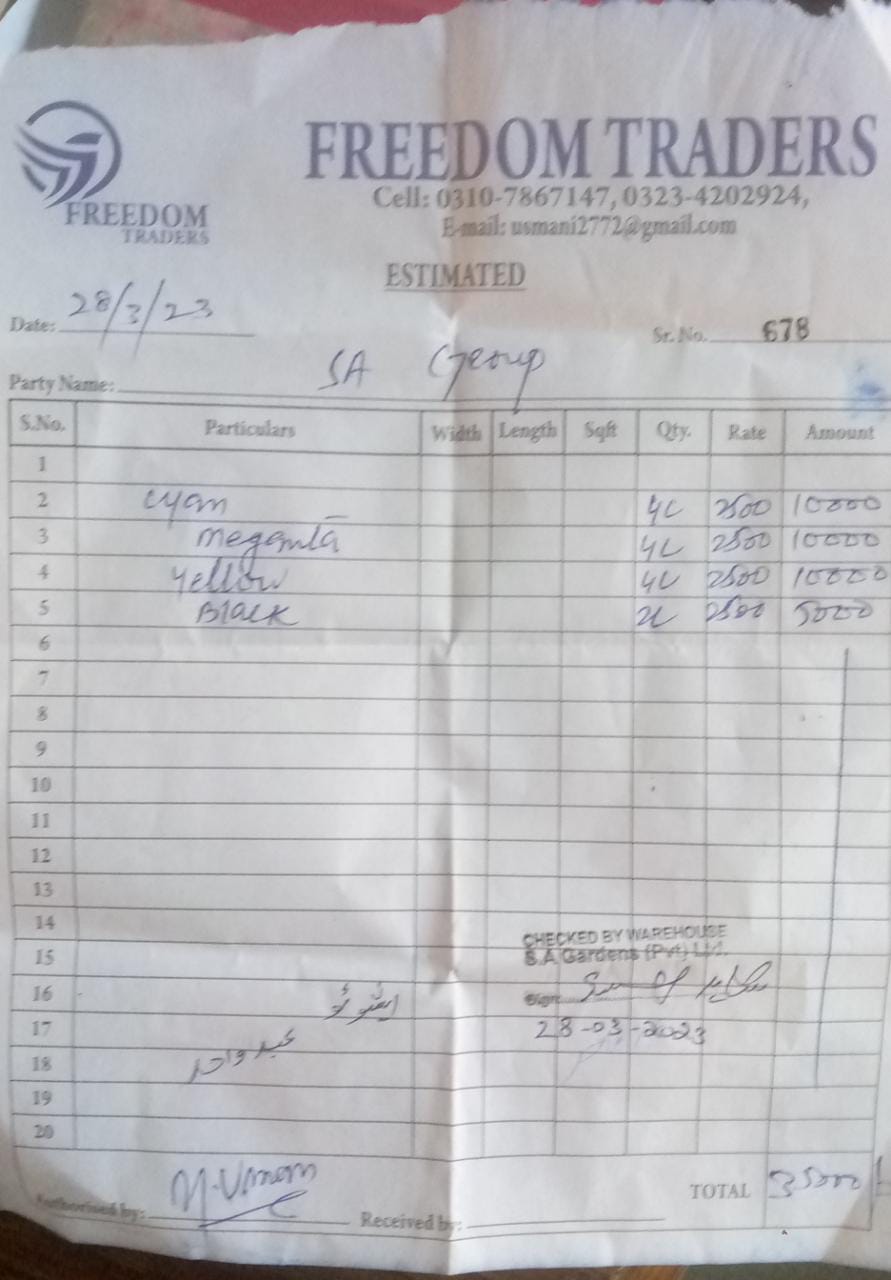 FREEDOM TRADERS
FREEDOM TRADERS
Cell: 0310-7867147, 0323-4202924,
E-mail: usmani2772@gmail.com
ESTIMATED
Date: 28/3/23
Sr. No. 678
Party Name: SA Group
S.No. Particulars Width Length Sqft Qty. Rate Amount
1
2 cyan 4L 2500 10000
3 megenta 4L 2500 10000
4 yellow 4L 2500 10000
5 Black 2L 2500 5000
6
7
8
9
10
11
12
13
14
CHECKED BY WAREHOUSE
15
S.A Gardens (Pvt) Ltd.
16
Sign
17
28-03-2023
18
19
20
TOTAL 35000
Authorised by: M-Usman
Received by: